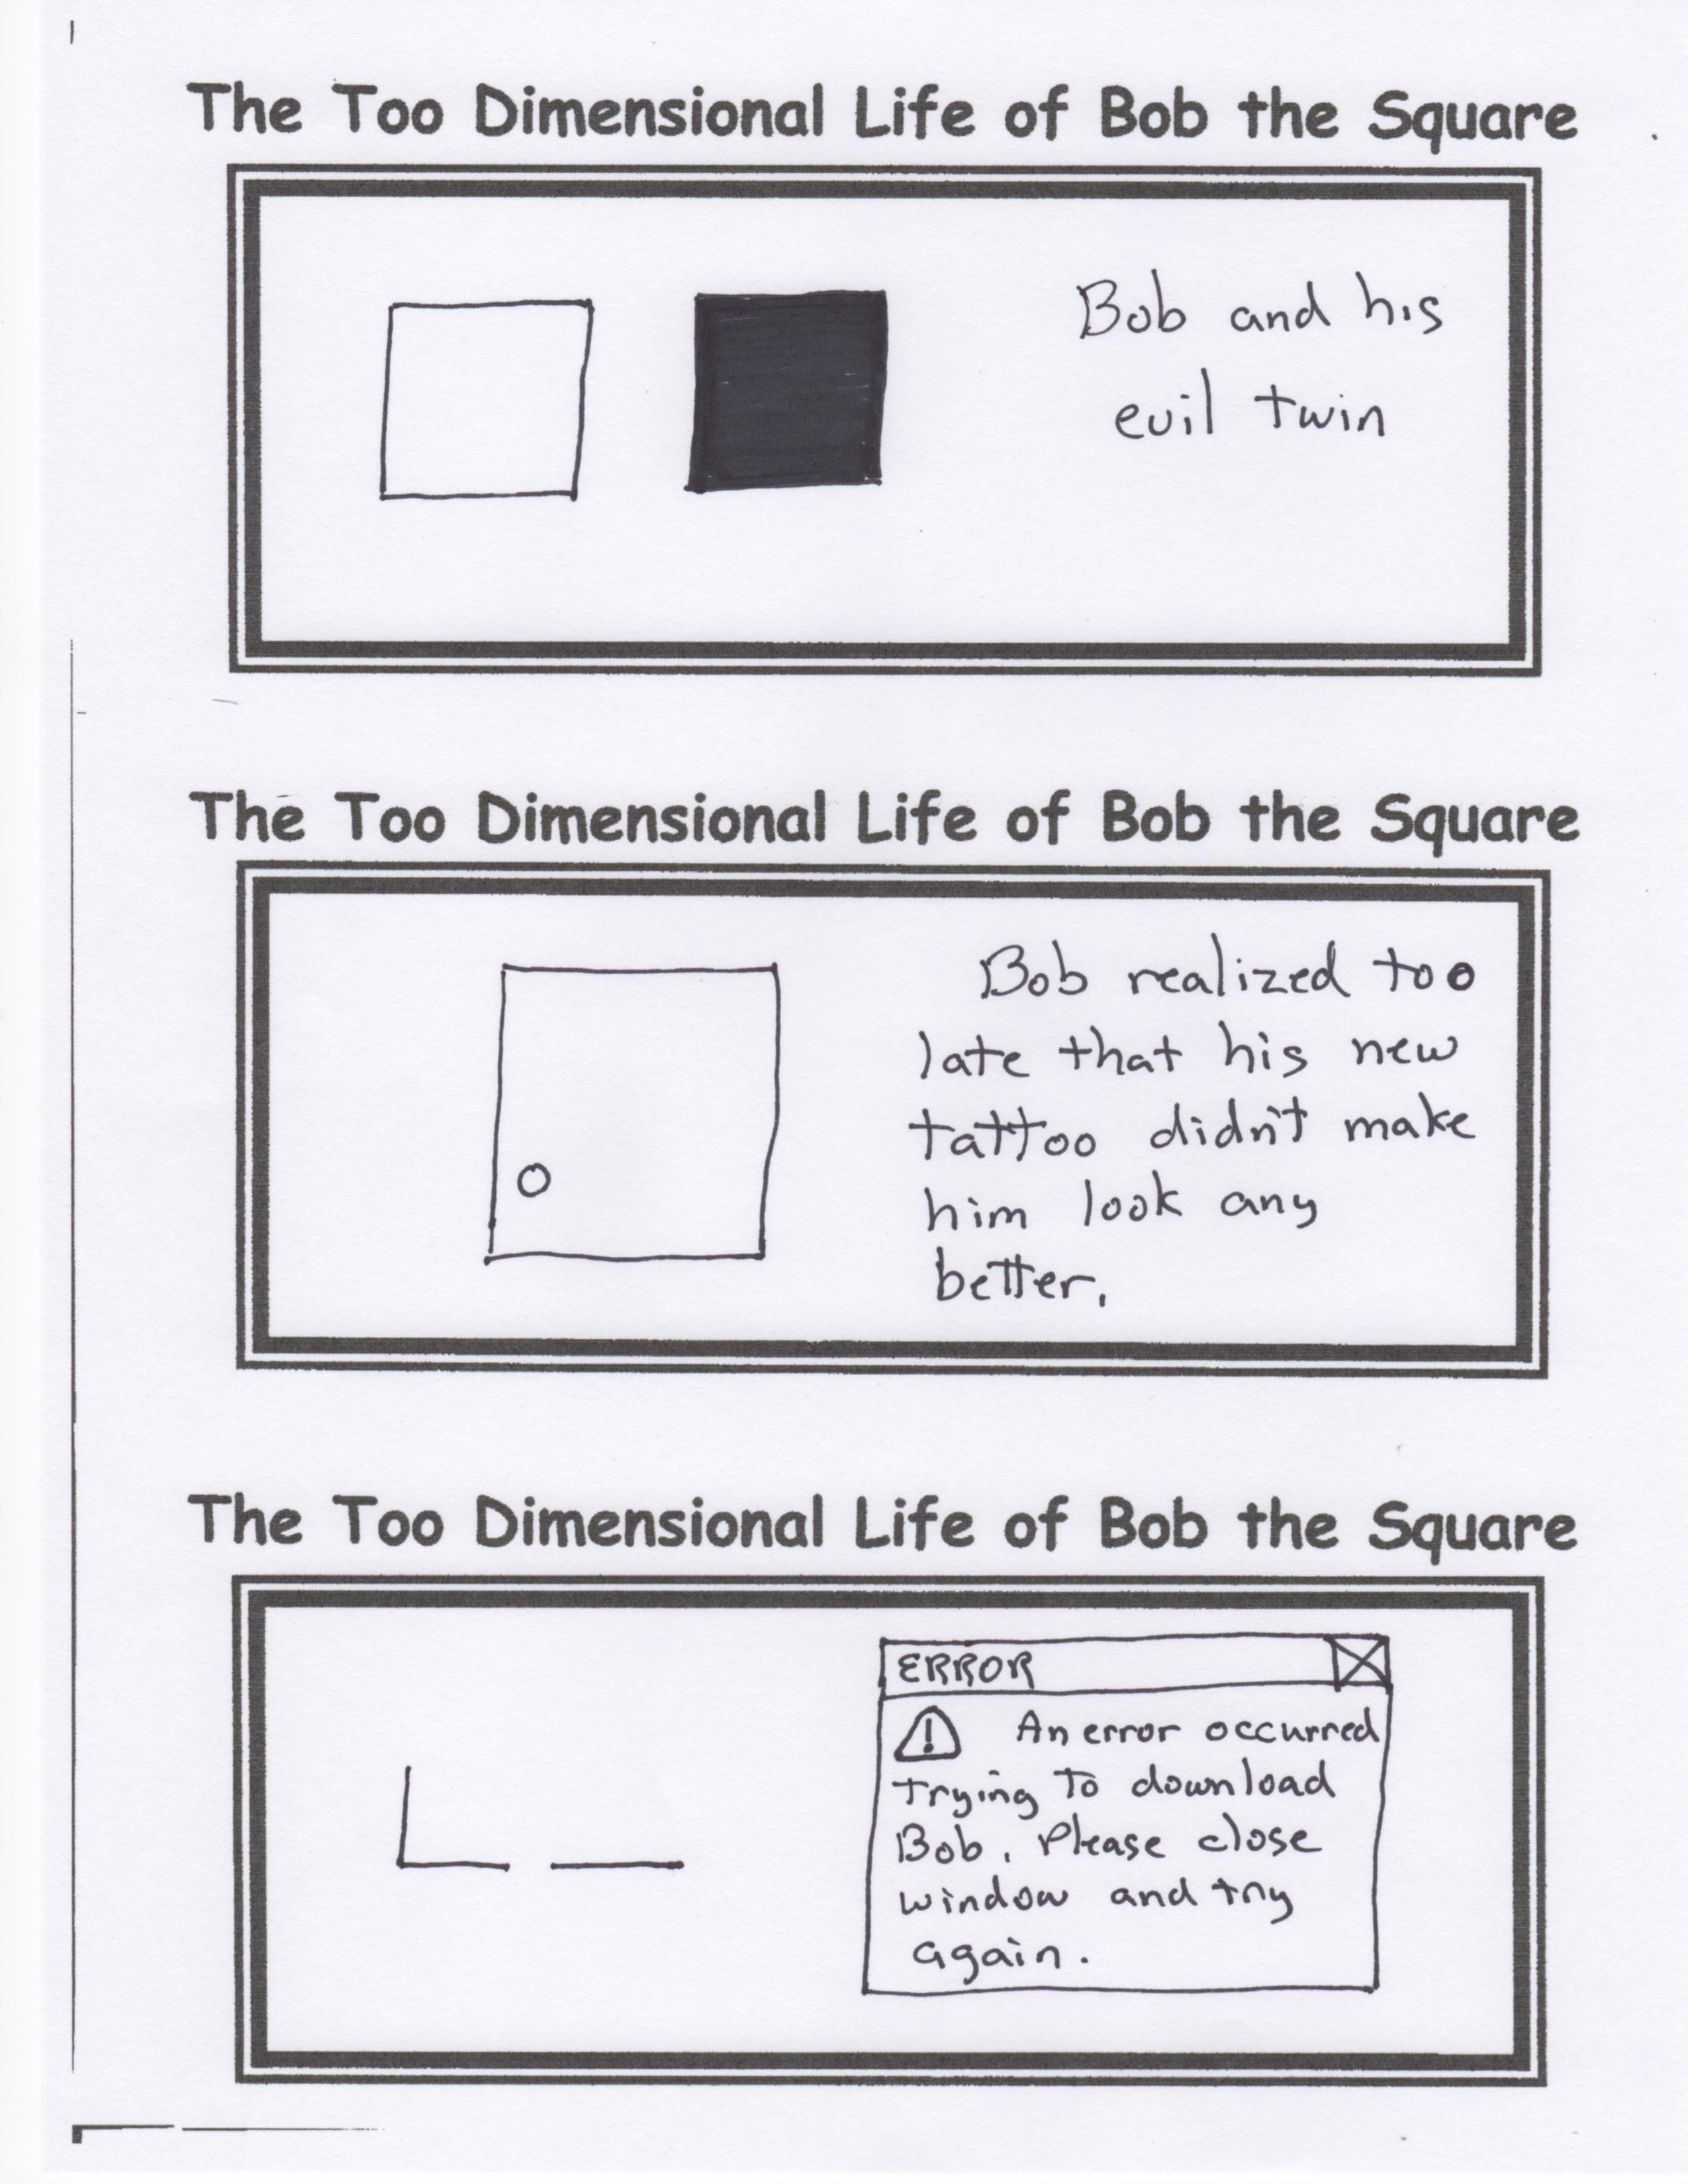 The Too Dimensional Life of Bob the Square
Bob and his
evil twin
The Too Dimensional Life of Bob the Square
Bob realized too
late that his new
tattoo didn't make
him look any
better.
The Too Dimensional Life of Bob the Square
ERROR
! An error occurred
trying to download
Bob. Please close
window and try
again.